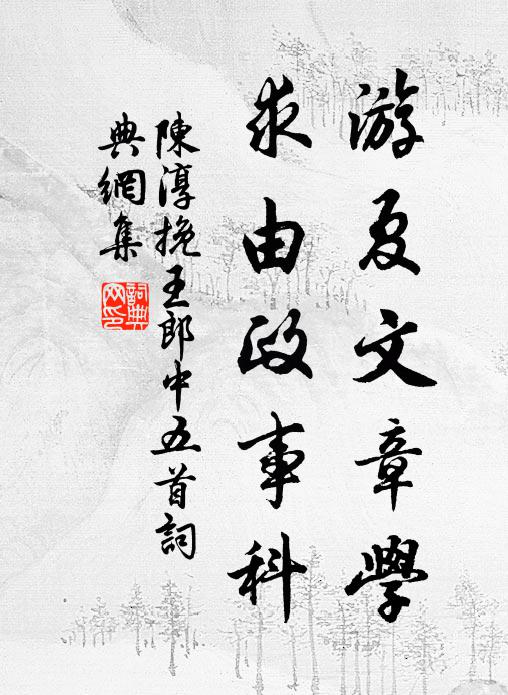 游夏文章學
求由政事科
陳淳挽王郎中五首詞
典網集
詞典網印